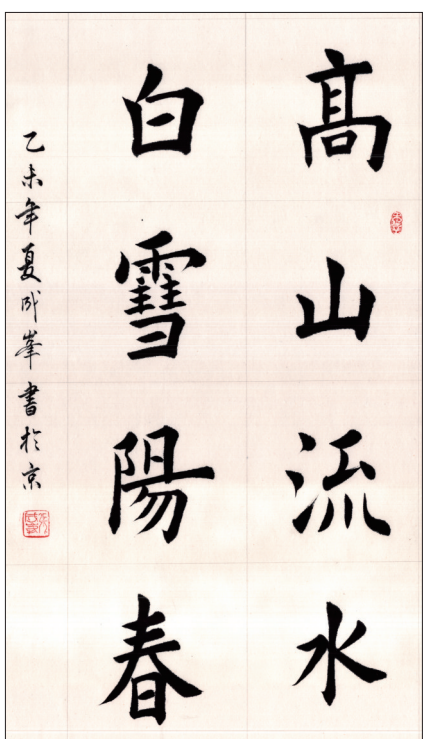 髙山流水
白雪陽春
乙未年夏成峯書於京